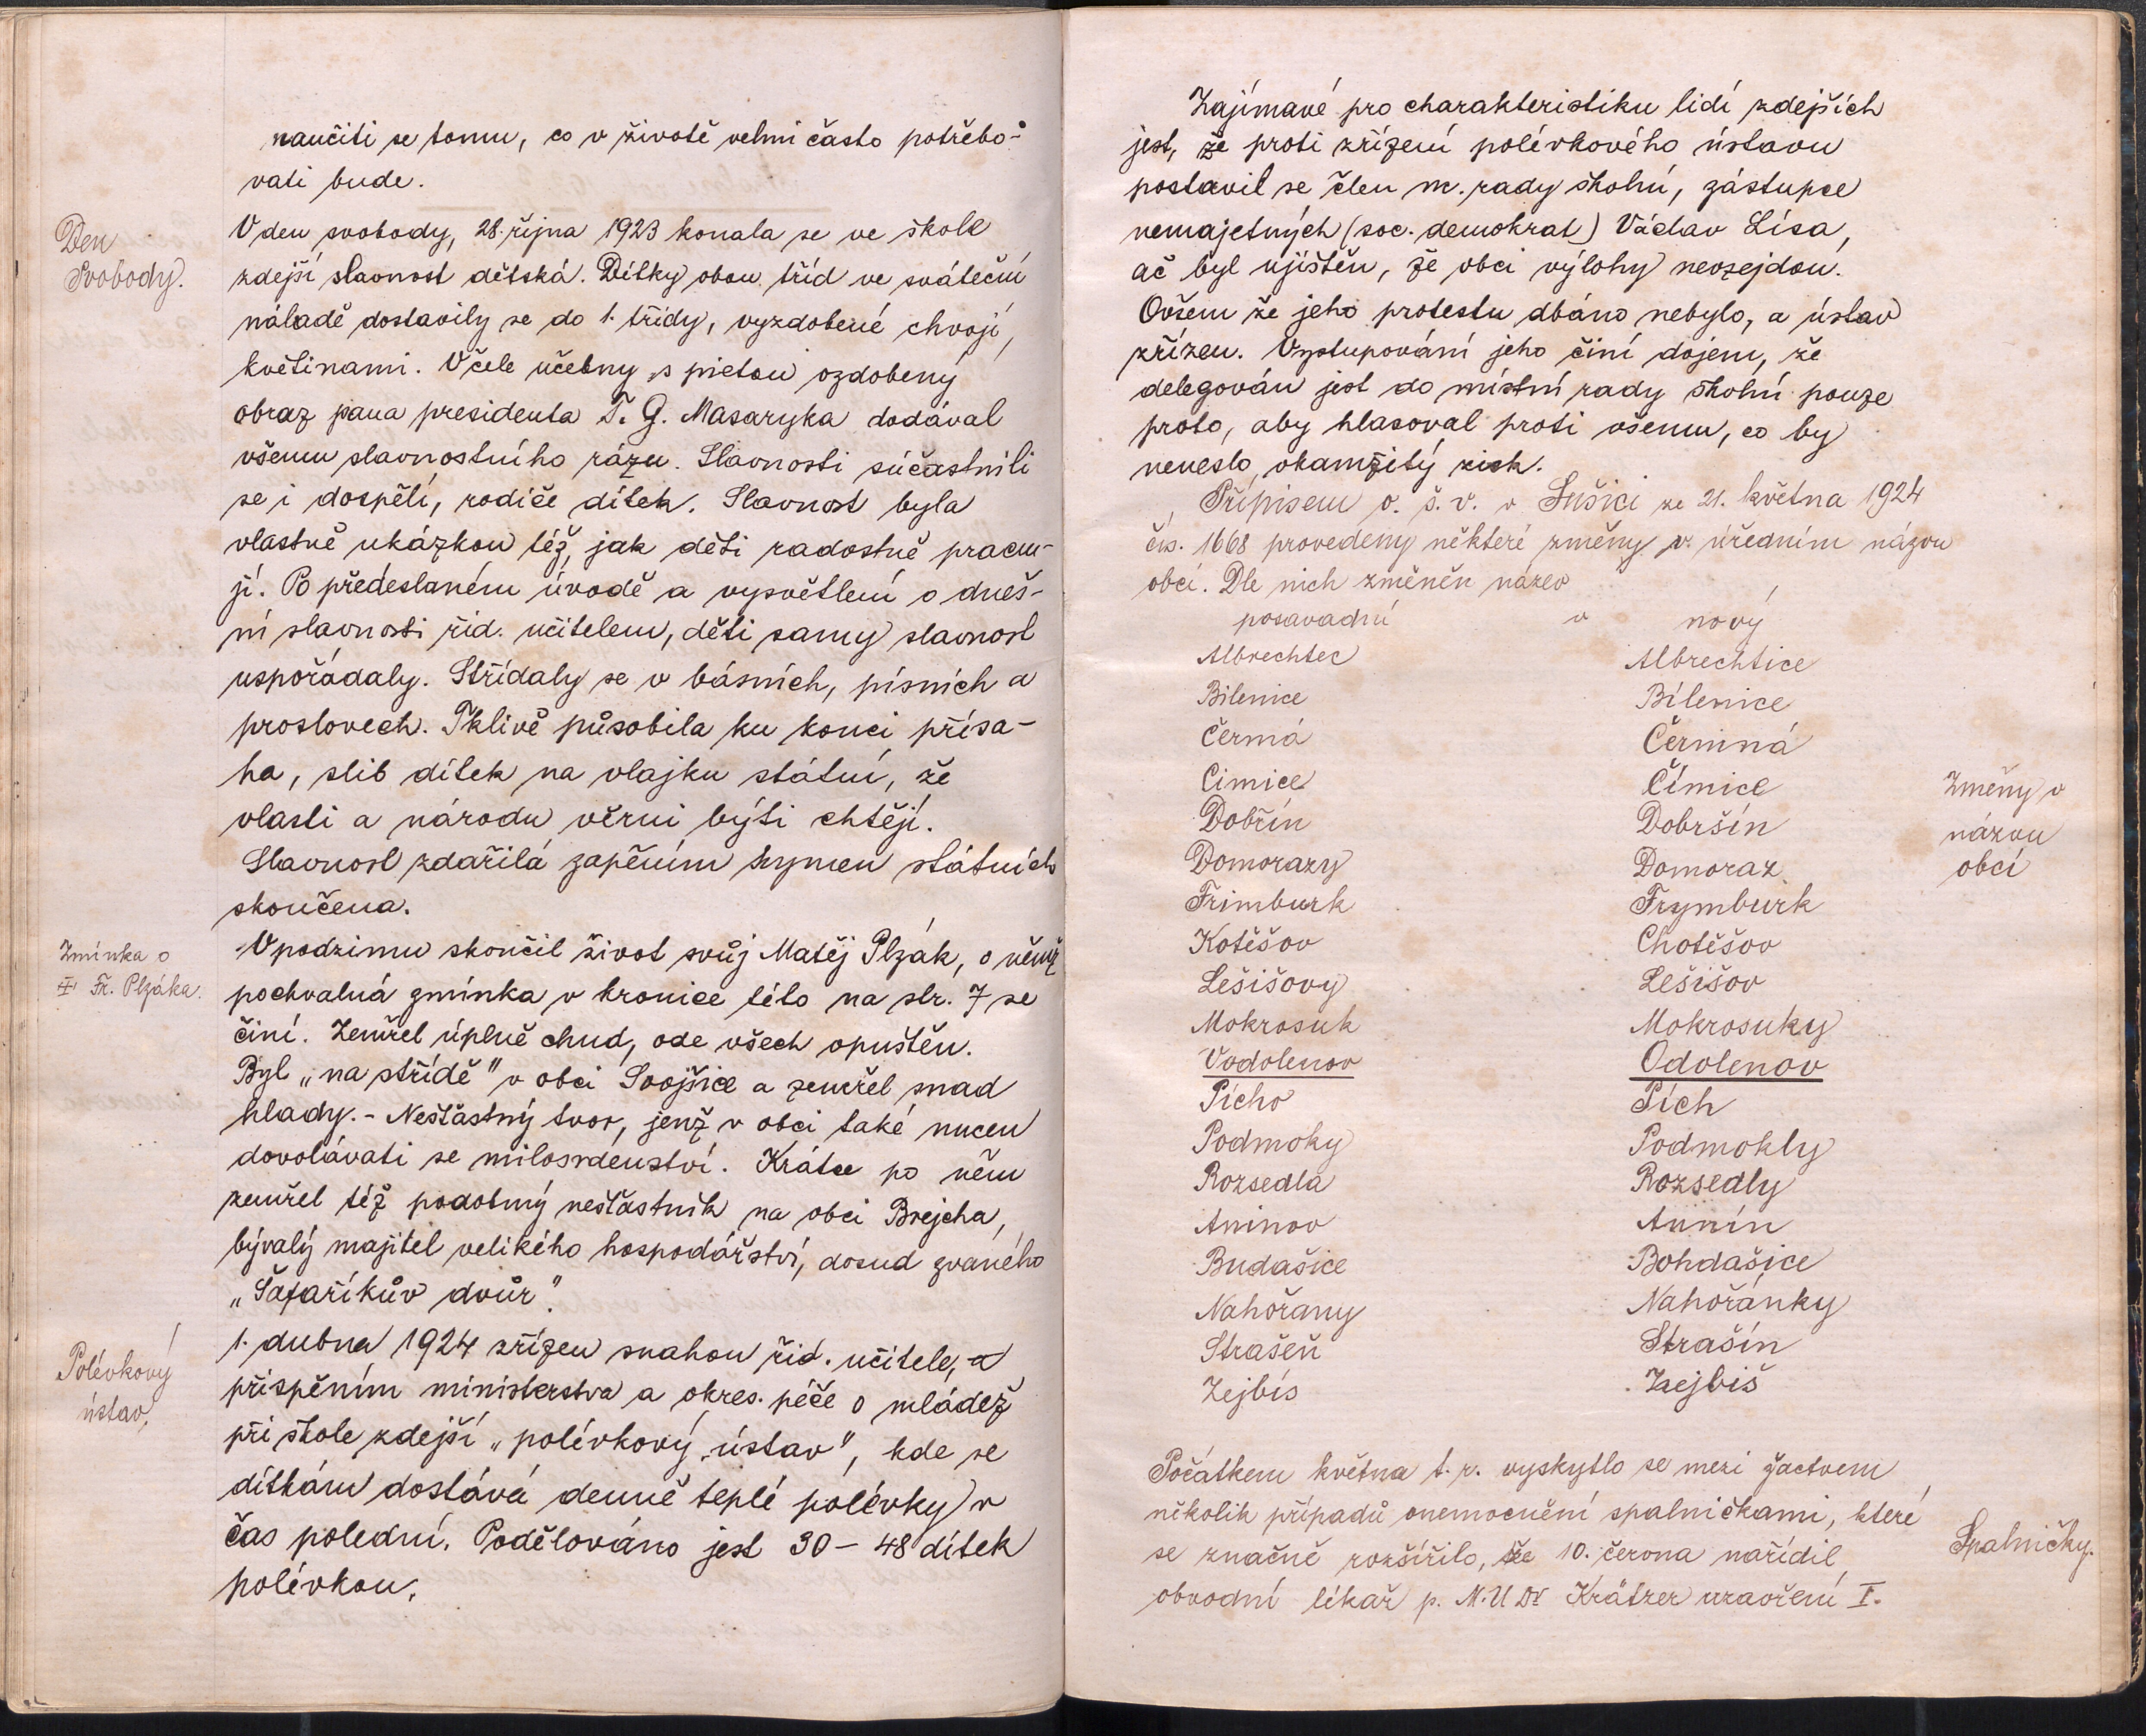 naučiti se tomu, co v životě velmi často potřebo-
vati bude.
Den
Svobody.
V den svobody, 28. října 1923 konala se ve škole
zdejší slavnost dětská. Dítky obou tříd ve sváteční
náladě dostavily se do 1. třídy, vyzdobené chvojí,
květinami. V čele učebny s pietou ozdobený
obraz pana presidenta T. G. Masaryka dodával
všemu slavnostního rázu. Slavnosti súčastnili
se i dospělí, rodiče dítek. Slavnost byla
vlastně ukázkou též, jak děti radostně pracu-
jí. Po předeslaném úvodě a vysvětlení o dneš-
ní slavnosti říd. učitelem, děti samy slavnost
uspořádaly. Střídaly se v básních, písních a
proslovech. Tklivě působila ku konci přísa-
ha, slib dítek na vlajku státní, že
vlasti a národu věrni býti chtějí.
Slavnost zdařilá zapěním hymen státních
skončena.
Zmínka o
† Fr. Plzáka.
V podzimu skončil život svůj Matěj Plzák, o němž
pochvalná zmínka v kronice této na str. 7 se
činí. Zemřel úplně chud, ode všech opuštěn.
Byl „na střídě" v obci Svojšice a zemřel snad
hlady. - Nešťastný tvor, jenž v obci také nucen
dovolávati se milosrdenství. Krátce po něm
zemřel též podobný nešťastník na obci Brejcha,
bývalý majitel velikého hospodářství, dosud zvaného
„Šafaříkův dvůr".
Polévkový
ústav.
1. dubna 1924 zřízen snahou říd. učitele, a
přispěním ministerstva a okres. péče o mládež
při škole zdejší „polévkový ústav", kde se
dítkám dostává denně teplé polévky v
čas polední. Podělováno jest 30 - 48 dítek
polévkou.
Zajímavé pro charakteristiku lidí zdejších
jest, že proti zřízení polévkového ústavu
postavil se člen m. rady školní, zástupce
nemajetných (soc. demokrat) Václav Lísa,
ač byl ujištěn, že obci výlohy nevzejdou.
Ovšem že jeho protestu dbáno nebylo, a ústav
zřízen. Vystupování jeho činí dojem, že
delegován jest do místní rady školní pouze
proto, aby hlasoval proti všemu, co by
neneslo okamžitý zisk.
Přípisem o. š. v. v Sušici ze 21. května 1924
čís. 1668 provedeny některé změny v úředním názvu
obcí. Dle nich změněn název
posavadní v nový
Albrechtec Albrechtice
Bilenice Bílenice
Čermá Čermná
Cimice Čímice
Dobřín Dobršín
Domorazy Domoraz
Frimburk Frymburk
Kotěšov Chotěšov
Lešišovy Lešišov
Mokrosuk Mokrosuky
Vodolenov Odolenov
Pícho Pích
Podmoky Podmokly
Rozsedla Rozsedly
Aninov Annín
Budašice Bohdašice
Nahořany Nahořánky
Strašeň Strašín
Zejbis Zejbiš
Změny v
názvu
obcí
Počátkem května t. r. vyskytlo se mezi žactvem
několik případů onemocnění spalničkami, které
se značně rozšířilo, že 10. června nařídil
obvodní lékař p. M.U.Dr Krátzer uzavření I.
Spalničky.